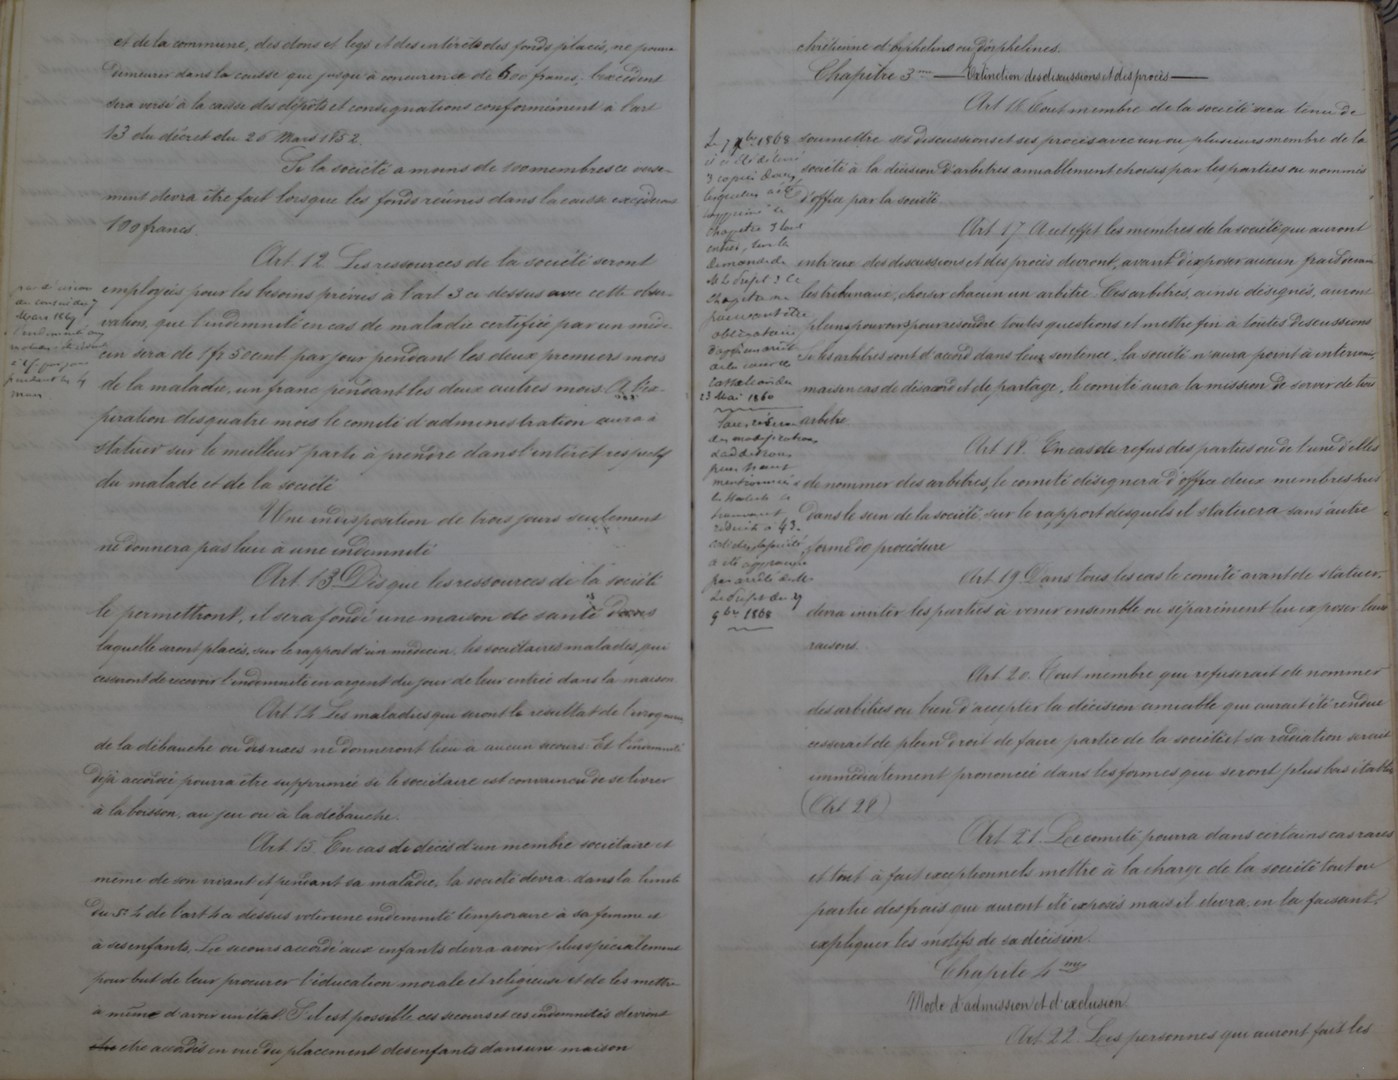 et de la commune, des dons et legs et des intérêts des fonds placés, ne pourra
demeurer dans la caisse que jusqu'à concurrence de 500 francs; l'excédent
sera versé à la caisse des dépôts et consignations conformément à l'art
13 du décret du 26 Mars 1852.
Si la société a moins de 100 membres ce verse-
ment devra être fait lorsque les fonds réunis dans la caisse excéderont
100 francs.
Art. 12. Les ressources de la société seront
employées pour les besoins prévus à l'art 3 ci dessus avec cette obser-
vation, que l'indemnité en cas de maladie certifiée par un méde-
cin sera de 1 fr 50 cent par jour pendant les deux premiers mois
de la maladie, un franc pendant les deux autres mois. A l'ex-
piration des quatre mois le comité d'administration aura à
statuer sur le meilleur parti à prendre dans l'intérêt respectif
du malade et de la société
Une indisposition de trois jours seulement
ne donnera pas lieu à une indemnité
Art. 13. Dès que les ressources de la société
le permettront, il sera fondé une maison de santé dans
laquelle seront placés, sur le rapport d'un médecin, les sociétaires malades, qui
cesseront de recevoir l'indemnité en argent du jour de leur entrée dans la maison
Art. 14. Les maladies qui seront le résultat de l'ivrognerie,
de la débauche ou des rixes ne donneront lieu à aucun secours. Et l'indemnité
déjà accordée pourra être supprimée si le sociétaire est convaincu de se livrer
à la boisson, au jeu ou à la débauche.
Art. 15. En cas de décès d'un membre sociétaire et
même de son vivant et pendant sa maladie, la société devra dans la limite
du § 4 de l'art 4 ci dessus voter une indemnité temporaire à sa femme et
à ses enfants. Les secours accordés aux enfants devra avoir plus spécialement
pour but de leur procurer l'éducation morale et religieuse et de les mettre
à même d'avoir un état. S'il est possible, ces secours et ces indemnités devront
être accordés en vue du placement des enfants dans une maison
par décision
du conseil du 7
Mars 1869
l'indemnité
pendant les 4
mois
chrétienne d'orphelins ou d'orphelines.
Chapitre 3me — Extinction des discussions et des procès —
Art. 16. Tout membre de la société sera tenu de
soumettre ses discussions et ses procès avec un ou plusieurs membre de la
société à la décision d'arbitres amiablement choisis par les parties ou nommés
d'office par la société.
Art. 17. A cet effet les membres de la société qui auront
entr'eux des discussions et des procès devront, avant d'exposer aucun frais devant
les tribunaux, choisir chacun un arbitre. Ces arbitres, ainsi désignés, auront
pleins pouvoirs pour résoudre toutes questions et mettre fin à toutes discussions
Si les arbitres sont d'accord dans leur sentence, la société n'aura point à intervenir,
mais en cas de désaccord et de partage, le comité aura la mission de servir de tiers
arbitre.
Art. 18. En cas de refus des parties ou de l'une d'elles
de nommer des arbitres, le comité désignera d'office deux membres pris
dans le sein de la société, sur le rapport desquels il statuera sans autre
forme de procédure
Art. 19. Dans tous les cas le comité avant de statuer,
devra inviter les parties à venir ensemble ou séparément lui exposer leurs
raisons.
Art. 20. Tout membre qui refuserait de nommer
des arbitres ou bien d'accepter la décision amiable qui aurait été rendue
cesserait de plein droit de faire partie de la société et sa radiation serait
immédiatement prononcée dans les formes qui seront plus bas établies
(Art. 28)
Art. 21. Le comité pourra dans certains cas rares
et tout à fait exceptionnels mettre à la charge de la société tout ou
partie des frais qui auront été exposés mais il devra, en la faisant,
expliquer les motifs de sa décision.
Chapite 4me
Mode d'admission et d'exclusion.
Art. 22. Les personnes qui auront fait les
Le 7 1868
3 copies
supprimé le
chapitre 3 tout
entier, sur la
demande de
Mr le Préfet. Ce
chapitre ne
pouvant être
obligatoire
d'après un arrêt
de la cour de
cassation du
23 Mai 1860
des modifications
additions
plus haut
mentionnées
réduits à 43.
a été approuvé
par arrêté de Mr
Le Préfet du 27
9bre 1868